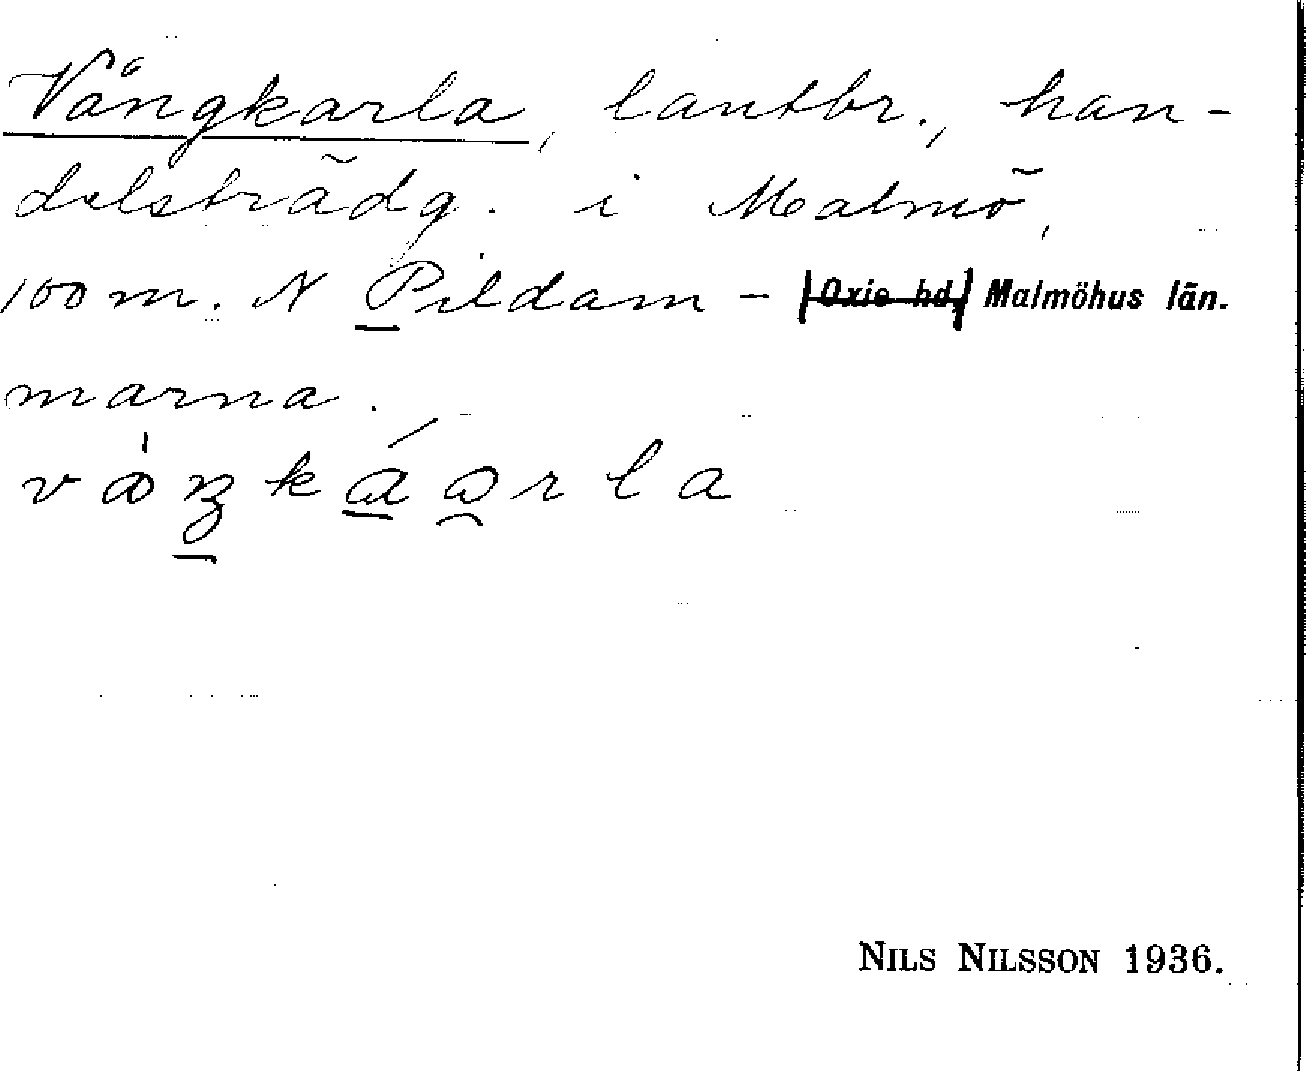 Vångkarla, lantbr., han-
delsträdg. i Malmö,
100 m. N Pildam- Oxie hd, Malmöhus län.
marna.
NILS NILSSON 1936.